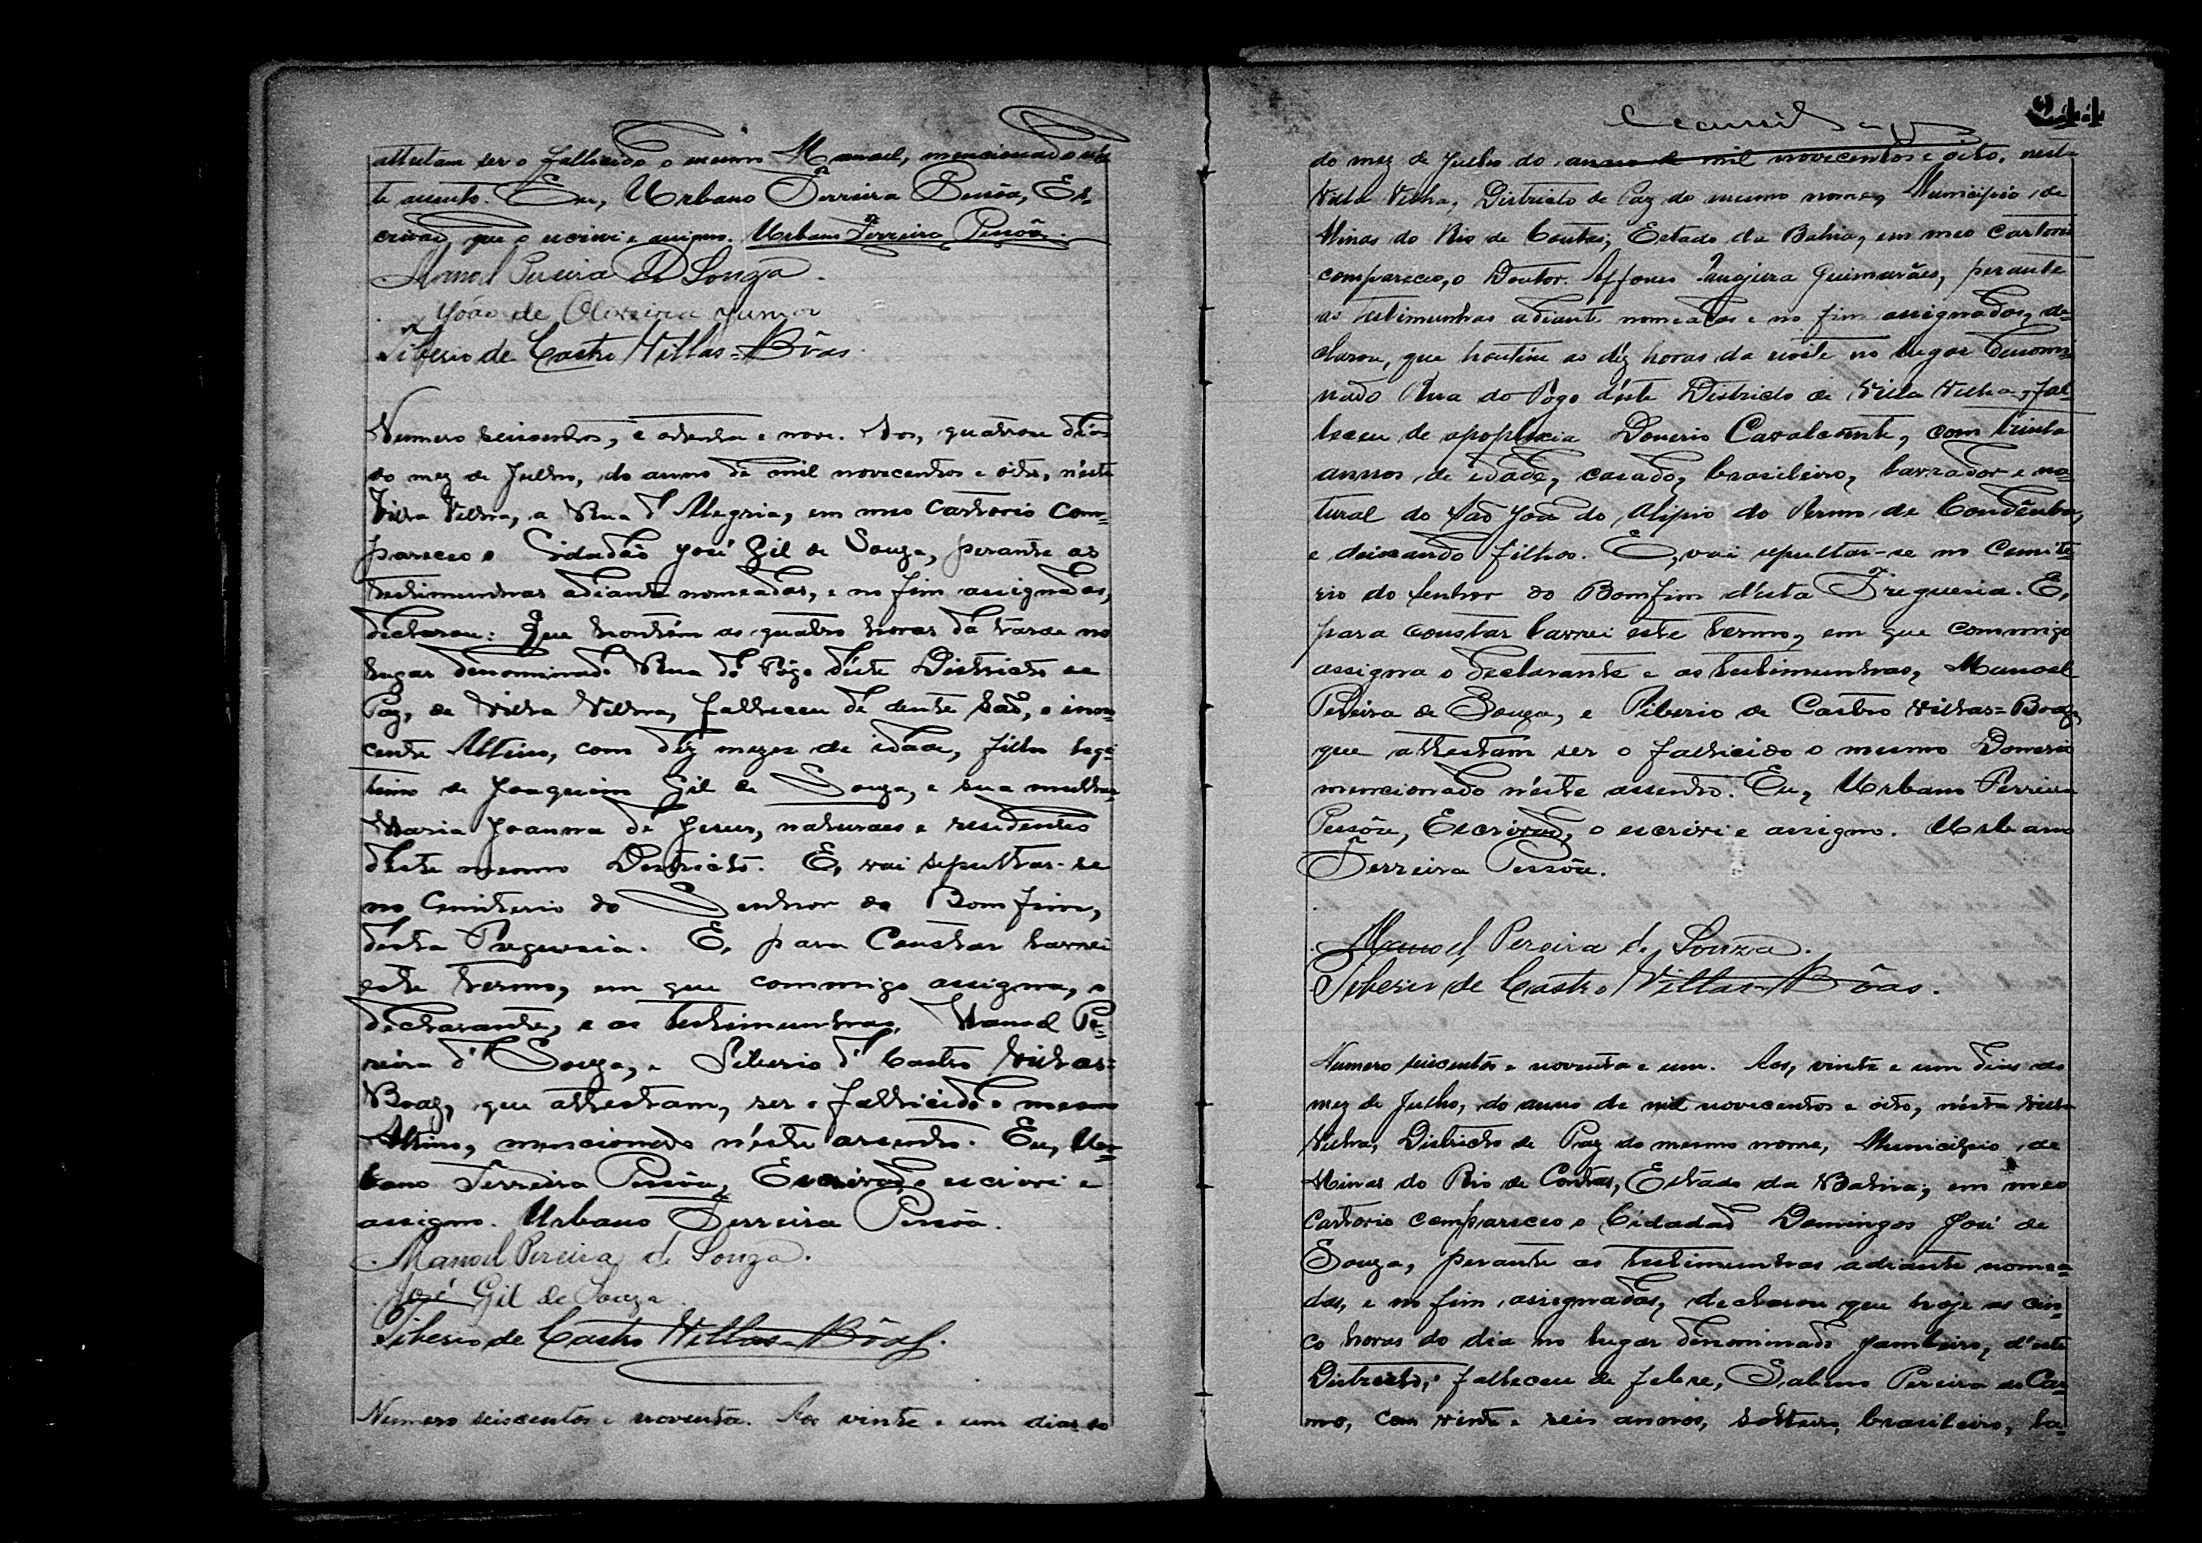 attestam ser o fallecido o mesmo Manoel, mencionado nes
te assento. Eu, Urbano Ferreira Pessôa, Es-
crivão, que o escrivi e assigno. Urbano Ferreira Pessôa.
Manoel Pereira de Souza.
João de Oliveira Junior
Tiberio de Castro Villas=Bôas.
Numero seiscentos, e oitenta e nove. Aos, quatorze dias
do mez de Julho, do anno de mil novecentos e oito, n'esta
Villa Velha, a Rua d'Alegria, em meo Cartorio com-
pareceo o Cidadão José Gil de Souza, perante as
testimunhas adiante nomeadas, e no fim assignadas,
declarou: Que hontêm as quatro horas da tarde no
lugar denominado Rua do Pôgo d'éste Districto de
Paz, de Villa Velha, falleceu de dente são, o inno-
cente Altino, com déz mezes de idade, filho legi-
timo de Joaquim Gil de Souza, e sua mulher,
Maria Joanna de Jesus, naturaes e residentes
d'éste mesmo Destricto. E, vai sepultar-se
no Cemiterio do Senhor do Bomfim,
désta Freguesia. E, para Constar lavrei
este termo, em que commigo assigna, o
declarante, e as testimunhas, Manoel Pe-
reira d' Souza, e Tiberio d' Castro Villas=
Boas, que attestam, ser o fallicido o mesmo
Altino, mencionado n'éste assento. Eu, Ur-
bano Ferreira Pessôa, Escrivão o escrivi e
assigno. Urbano Ferreira Pessôa.
Manoel Pereira de Souza.
José Gil de Souza
Tiberio de Castro Villas=Bôas.
Numero seiscentos e noventa. Aos vinte e um dias do
244
do mez de Julho do anno de mil novecentos e oito, nesta
Villa Velha, Districto de Paz do mesmo nome, Municipio de
Minas do Rio de Contas, Estado da Bahia, em meo Cartorio
compareceo, o Doutor Affonso Guimarães, perante
as testimunhas adiante nomeadas e no fim assignadas, de-
clarou, que hontêm as déz horas da noite no lugar denomi-
nado Rua do Pôgo d'éste Districto de Villa Velha, fal-
leceu de apoplexia Donerio Cavalcante, com trinta
annos de idade, casado, brasileiro, lavrador e na-
tural do São João do Alipio do Termo de Condeûba,
e deixando filhos. E, vai sepultar-se no Cemite-
rio do Senhor do Bomfim d'esta Freguesia. E,
para constar lavrei este termo, em que commigo
assigna o declarante e as testimunhas, Manoel
Pereira de Souza, e Tiberio de Castro Villas=Boas,
que attestam ser o fallicido o mesmo Donerio
mencionado n'éste assento. Eu, Urbano Ferreira
Pessôa, Escrivão, o escrivi e assigno. Urbano
Ferreira Pessôa.
Manoel Pereira de Souza.
Tiberio de Castro Villas=Bôas.
Numero seiscentos e noventa e um. Aos, vinte e um dias do
mez de Julho, do anno de mil novecentos e oito, n'ésta Villa
Velha, Districto de Paz do mesmo nome, Municipio de
Minas do Rio de Contas, Estado da Bahia; em meo
Cartorio compareceo o Cidadão Domingos José de
Souza, perante as testimunhas adiante nomea-
das, e no fim assignadas, declarou que hoje as cin-
co horas do dia no lugar denominado Jambeiro, d'este
Districto, falleceu de febre, Sabino Pereira do Car-
mo, com vinte e seis annos, solteiro, brasileiro, la-